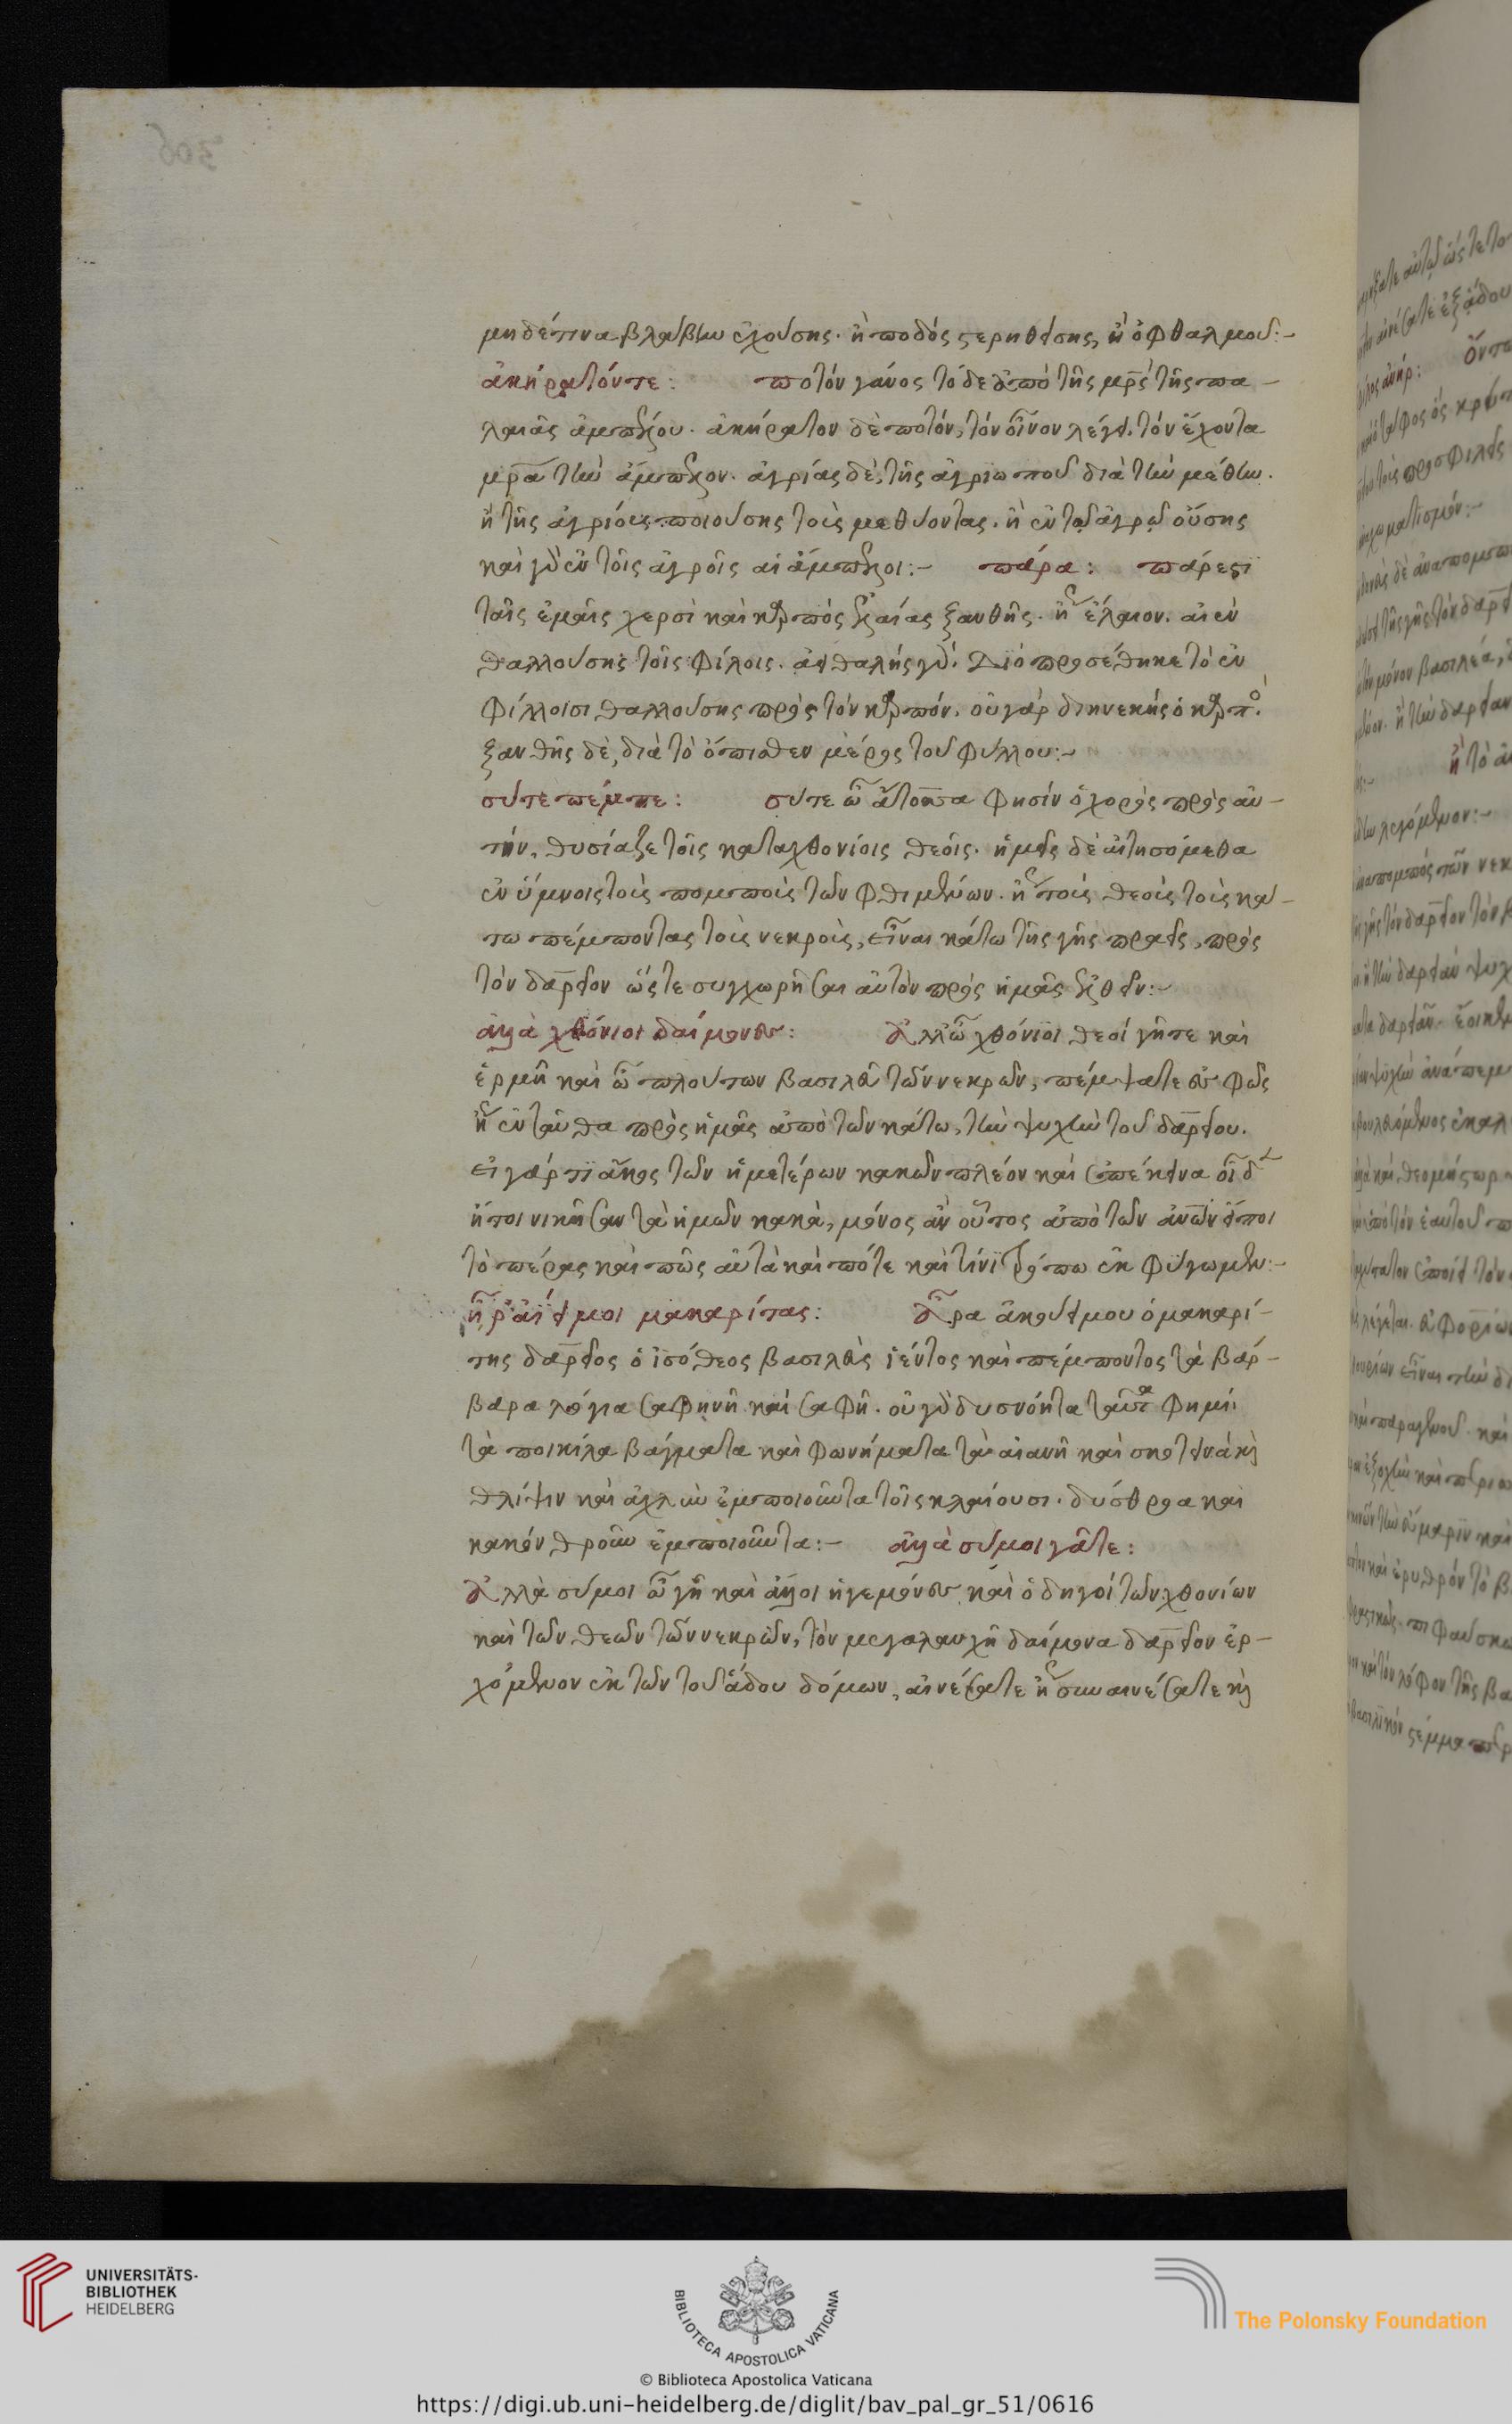 μηδέ τινα βλάβην ἐχούσης. ἢ ποδὸς στερηθείσης, ἢ ὀφθαλμοῦ:-
ἀκήρατόν τε: ποτὸν γάνος τόδε ἀπὸ τῆς μρς τῆς πα-
λαιᾶς ἀμπέλου. ἀκήρατον δὲ ποτόν, τὸν οἶνον λέγει. τὸν ἔχοντα
μρα τὴν ἄμπελον. ἀγρίας δὲ, τῆς ἀγριωποῦ διὰ τὴν μέθην.
ἢ τῆς ἀγρίους ποιούσης τοὺς μεθύοντας. ἢ ἐν τῷ ἀγρῷ οὔσης
καὶ γὰρ ἐν τοῖς ἀγροῖς αἱ ἄμπελοι:- πάρα: πάρεστι
ταῖς ἐμαῖς χερσὶ καὶ καρπὸς ἐλαίας ξανθῆς. ἤγουν ἔλαιον. αἰὲν
θαλλούσης τοῖς φίλοις. ἀειθαλὴς γάρ. Διὸ προσέθηκε τὸ ἐν
φίλλοισι θαλλούσης πρὸς τὸν καρπόν. οὐ γὰρ διηνεκὴς ὁ καρπο.
ξανθῆς δὲ, διὰ τὸ ὄπισθεν μέρος τοῦ φύλλου:-
σύ τε πέμπε: σύ τε ὦ ἄτοσσα φησὶν ὁ χορὸς πρὸς αὐ-
τήν, θυσίαζε τοῖς καταχθονίοις θεοῖς. ἡμεῖς δὲ αἰτησόμεθα
ἐν ὕμνοις τοὺς πομποὺς τῶν φθιμένων. ἤγουν τοὺς θεοὺς τοὺς κά-
τω πέμποντας τοὺς νεκροὺς, εἶναι κάτω τῆς γῆς πραεῖς, πρὸς
τὸν δαρεῖον ὥστε συγχωρῆσαι αὐτὸν πρὸς ἡμᾶς ἐλθεῖν:-
ἀλλὰ χθόνιοι δαίμονες: Ἀλλ' ὦ χθόνιοι θεοὶ γῆ τε καὶ
ἑρμῆ καὶ ὦ πλούτων βασιλεῦ τῶν νεκρῶν, πέμψατε εἰς φῶς
ἤγουν ἐνταῦθα πρὸς ἡμᾶς ἀπὸ τῶν κάτω, τὴν ψυχὴν τοῦ δαρείου.
εἰ γάρ τι ἄκος τῶν ἡμετέρων κακῶν πλέον καὶ ἐπέκεινα οἶδε
ἤτοι νικῆσαν τὰ ἡμῶν κακὰ, μόνος ἂν οὗτος ἀπὸ τῶν ἀνων εἴποι
τὸ πέρας καὶ πῶς αὐτὰ καὶ πότε καὶ τίνι τρόπω ἐκφύγωμεν:-
ἦ ῥ' ἀΐει μοι μακαρίτας: Ἆρα ἀκούει μου ὁ μακαρί-
της δαρεῖος ὁ ἰσόθεος βασιλεὺς ἱέντος καὶ πέμποντος τὰ βάρ-
βαρα λόγια σαφηνῆ καὶ σαφῆ. οὐ γὰρ δυσνόητα ταῦτα φημί.
τὰ ποικίλα βάγματα καὶ φωνήματα τὰ αἰανῆ καὶ σκοτεινὰ καὶ
θλίψιν καὶ ἀχλὺν ἐμποιοῦντα τοῖς κλαίουσι. δύσθροα καὶ
κακὸν θροῦν ἐμποιοῦντα:- ἀλλὰ σύ μοι γᾶ τε:
Ἀλλὰ σύ μοι ὦ γῆ καὶ ἄλλοι ἡγεμόνες καὶ ὁδηγοὶ τῶν χθονίων
καὶ τῶν θεῶν τῶν νεκρῶν, τὸν μεγαλαυχῆ δαίμονα δαρεῖον ἐρ-
χόμενον ἐκ τῶν τοῦ ἅδου δόμων, αἰνέσατε ἤγουν συναινέσατε καὶ
UNIVERSITÄTS-
BIBLIOTHEK
HEIDELBERG
BIBLIOTECA APOSTOLICA VATICANA
The Polonsky Foundation
© Biblioteca Apostolica Vaticana
https://digi.ub.uni-heidelberg.de/diglit/bav_pal_gr_51/0616